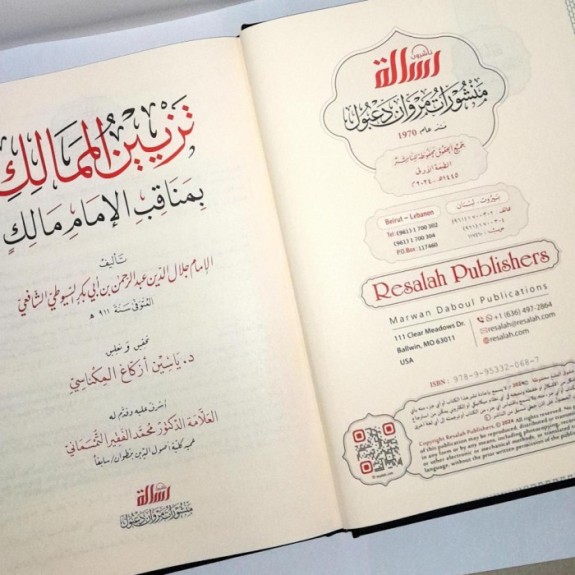 ناشرون
رسالة
منشورات مروان دعبول
منذ عام 1970
جميع الحقوق محفوظة للناشر
الطبعة الأولى
١٤٤٥هـ - ٢٠٢٤م
بيروت - لبنان
هاتف
Beirut - Lebanon
Tel: (961) 1 700 302
(961) 1 700 304
P.O.Box: 117460
Resalah Publishers
Marwan Daboul Publications
111 Clear Meadows Dr.
Ballwin, MO 63011
USA
+1 (636) 497-2864
resalah@resalah.com
resalah.com
ISBN: 978-9-95332-068-7
Copyright© Resalah Publishers. © 2024 All rights reserved. No
of this publication may be reproduced, distributed or
in any form or by any means, including photocopying,
or other electronic or mechanical methods, or
without the prior written permission of the
تزيين الممالك
بمناقب الإمام مالك
تأليف
الإمام جلال الدين عبد الرحمن بن أبي بكر السيوطي الشافعي
المتوفى سنة ٩١١ هـ
تحقيق وتعليق
د. ياسين أزكاغ المكناسي
أشرف عليه وقدم له
العلامة الدكتور محمد الفقير التمسماني
عميد كلية أصول الدين بتطوان/ سابقاً
ناشرون
رسالة
منشورات مروان دعبول